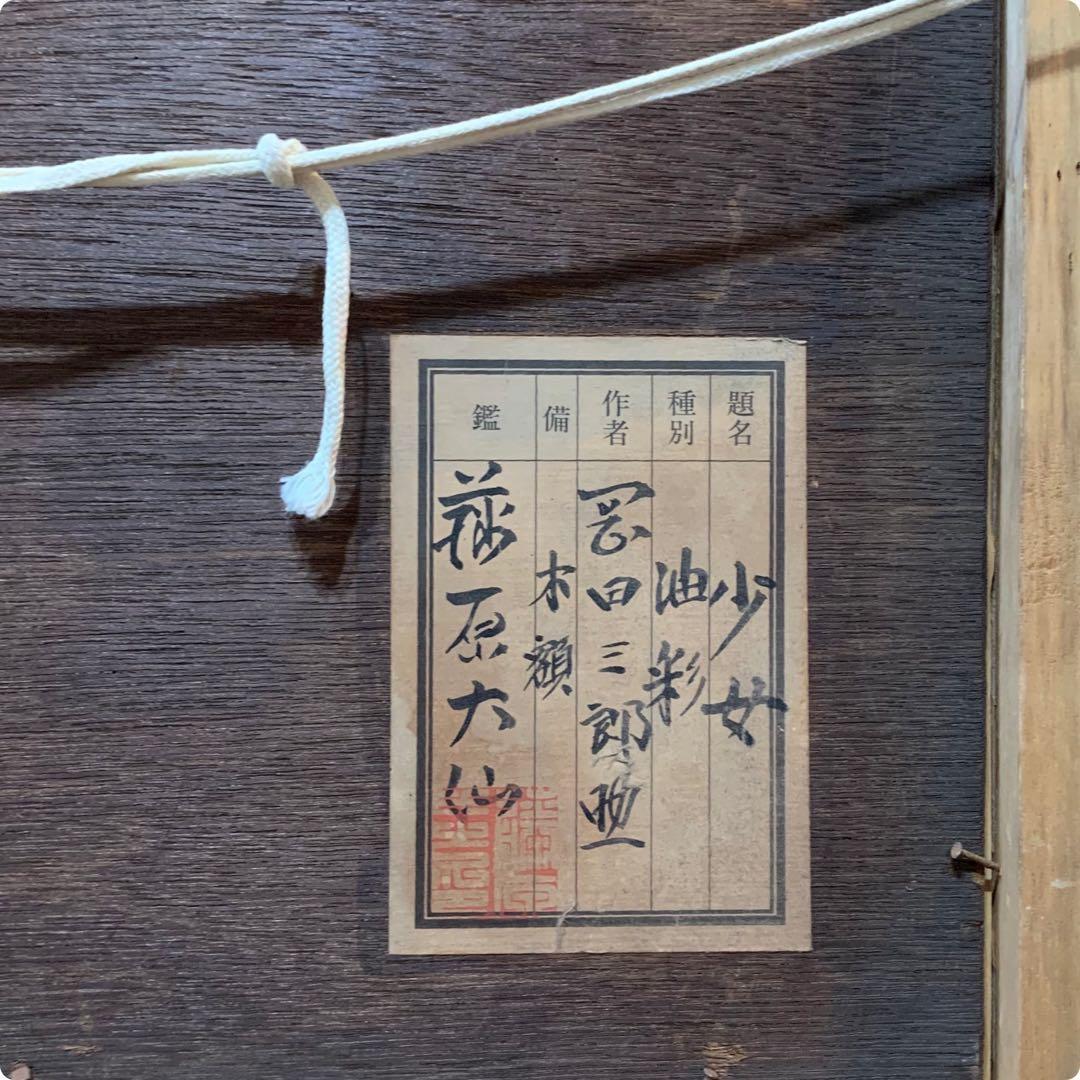 題名
少女
種別
油彩
作者
岡田三郎助
備
木額
鑑
原大仙